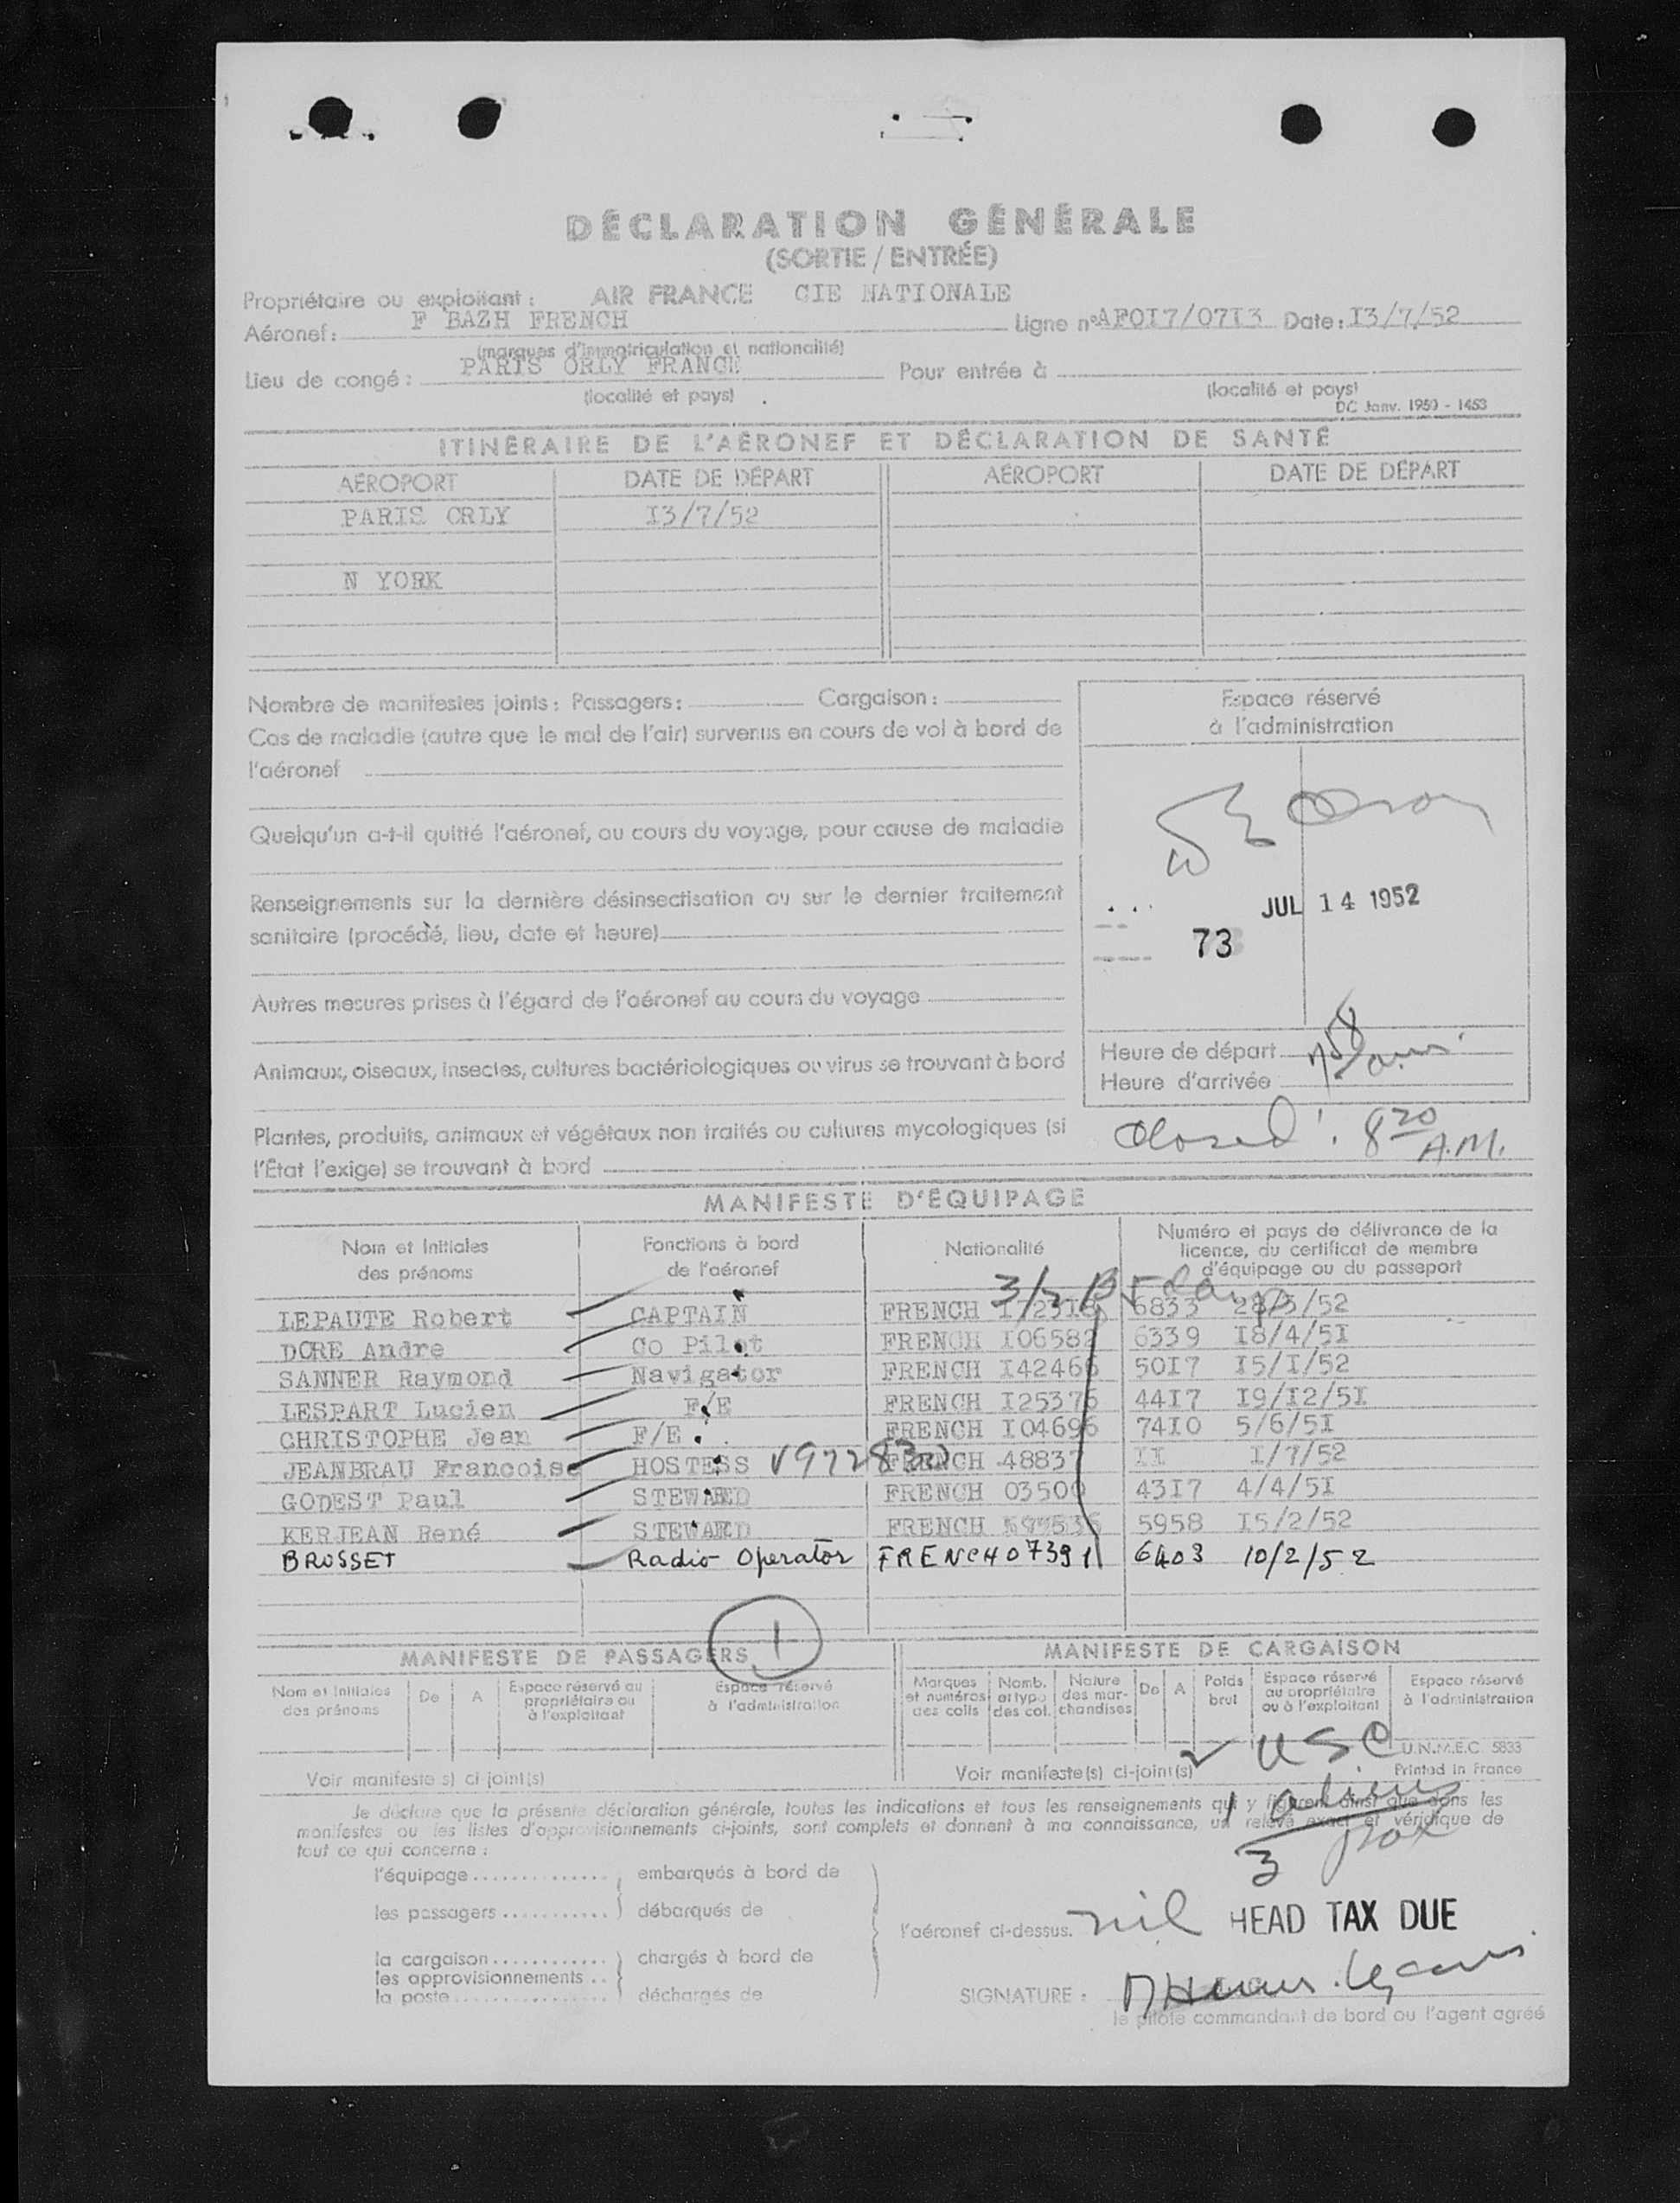 DÉCLARATION GÉNÉRALE
(SORTIE / ENTRÉE)
Propriétaire ou exploitant : AIR FRANCE CIE NATIONALE
Aéronef : F BAZH FRENCH Ligne n° AF0I7/07I3 Date : I3/7/52
(marques d'immatriculation et nationalité)
Lieu de congé : PARIS ORLY FRANCE Pour entrée à
(localité et pays) (localité et pays)
DC Janv. 1950 - 1453
ITINÉRAIRE DE L'AÉRONEF ET DÉCLARATION DE SANTÉ
AÉROPORT DATE DE DÉPART AÉROPORT DATE DE DÉPART
PARIS ORLY I3/7/52
N YORK
Nombre de manifestes joints : Passagers : Cargaison :
Cas de maladie (autre que le mal de l'air) survenus en cours de vol à bord de
l'aéronef
Quelqu'un a-t-il quitté l'aéronef, au cours du voyage, pour cause de maladie
Renseignements sur la dernière désinsectisation ou sur le dernier traitement
sanitaire (procédé, lieu, date et heure)
Autres mesures prises à l'égard de l'aéronef au cours du voyage
Animaux, oiseaux, insectes, cultures bactériologiques ou virus se trouvant à bord
Plantes, produits, animaux et végétaux non traités ou cultures mycologiques (si
l'État l'exige) se trouvant à bord
Espace réservé
à l'administration
JUL 14 1952
73
Heure de départ
Heure d'arrivée
Closed : 8 20 A.M.
MANIFESTE D'ÉQUIPAGE
Nom et Initiales des prénoms Fonctions à bord de l'aéronef Nationalité Numéro et pays de délivrance de la licence, du certificat de membre d'équipage ou du passeport
LEPAUTE Robert CAPTAIN FRENCH 6833
DORE Andre Co Pilot FRENCH I06582 6339 I8/4/5I
SANNER Raymond Navigator FRENCH I42466 50I7 I5/I/52
LESPART Lucien F/E FRENCH I25376 44I7 I9/I2/5I
CHRISTOPHE Jean F/E FRENCH I04696 74I0 5/6/5I
JEANBRAU Francoise HOSTESS FRENCH 48837 II I/7/52
GODEST Paul STEWARD FRENCH 03500 43I7 4/4/5I
KERJEAN René STEWARD FRENCH 5958 I5/2/52
BROSSET Radio Operator FRENCH 07391 6403 10/2/52
1
MANIFESTE DE PASSAGERS MANIFESTE DE CARGAISON
Nom et Initiales des prénoms De A Espace réservé au propriétaire ou à l'exploitant Espace réservé à l'administration
Marques et numéros des colis Nomb. et type des col. Nature des marchandises De A Poids brut Espace réservé au propriétaire ou à l'exploitant Espace réservé à l'administration
U.N.M.E.C. 5833
Voir manifeste(s) ci-joint(s) Voir manifeste(s) ci-joint(s) Printed in France
2 USC
1 aliens
3 pax
Je déclare que la présente déclaration générale, toutes les indications et tous les renseignements qui y figurent ainsi que dans les
manifestes ou les listes d'approvisionnements ci-joints, sont complets et donnent à ma connaissance, un relevé exact et véridique de
tout ce qui concerne :
l'équipage .............. embarqués à bord de
les passagers ........... débarqués de
l'aéronef ci-dessus.
nil HEAD TAX DUE
la cargaison ............ chargés à bord de
les approvisionnements ..
la poste ................ déchargés de
SIGNATURE :
le pilote commandant de bord ou l'agent agréé